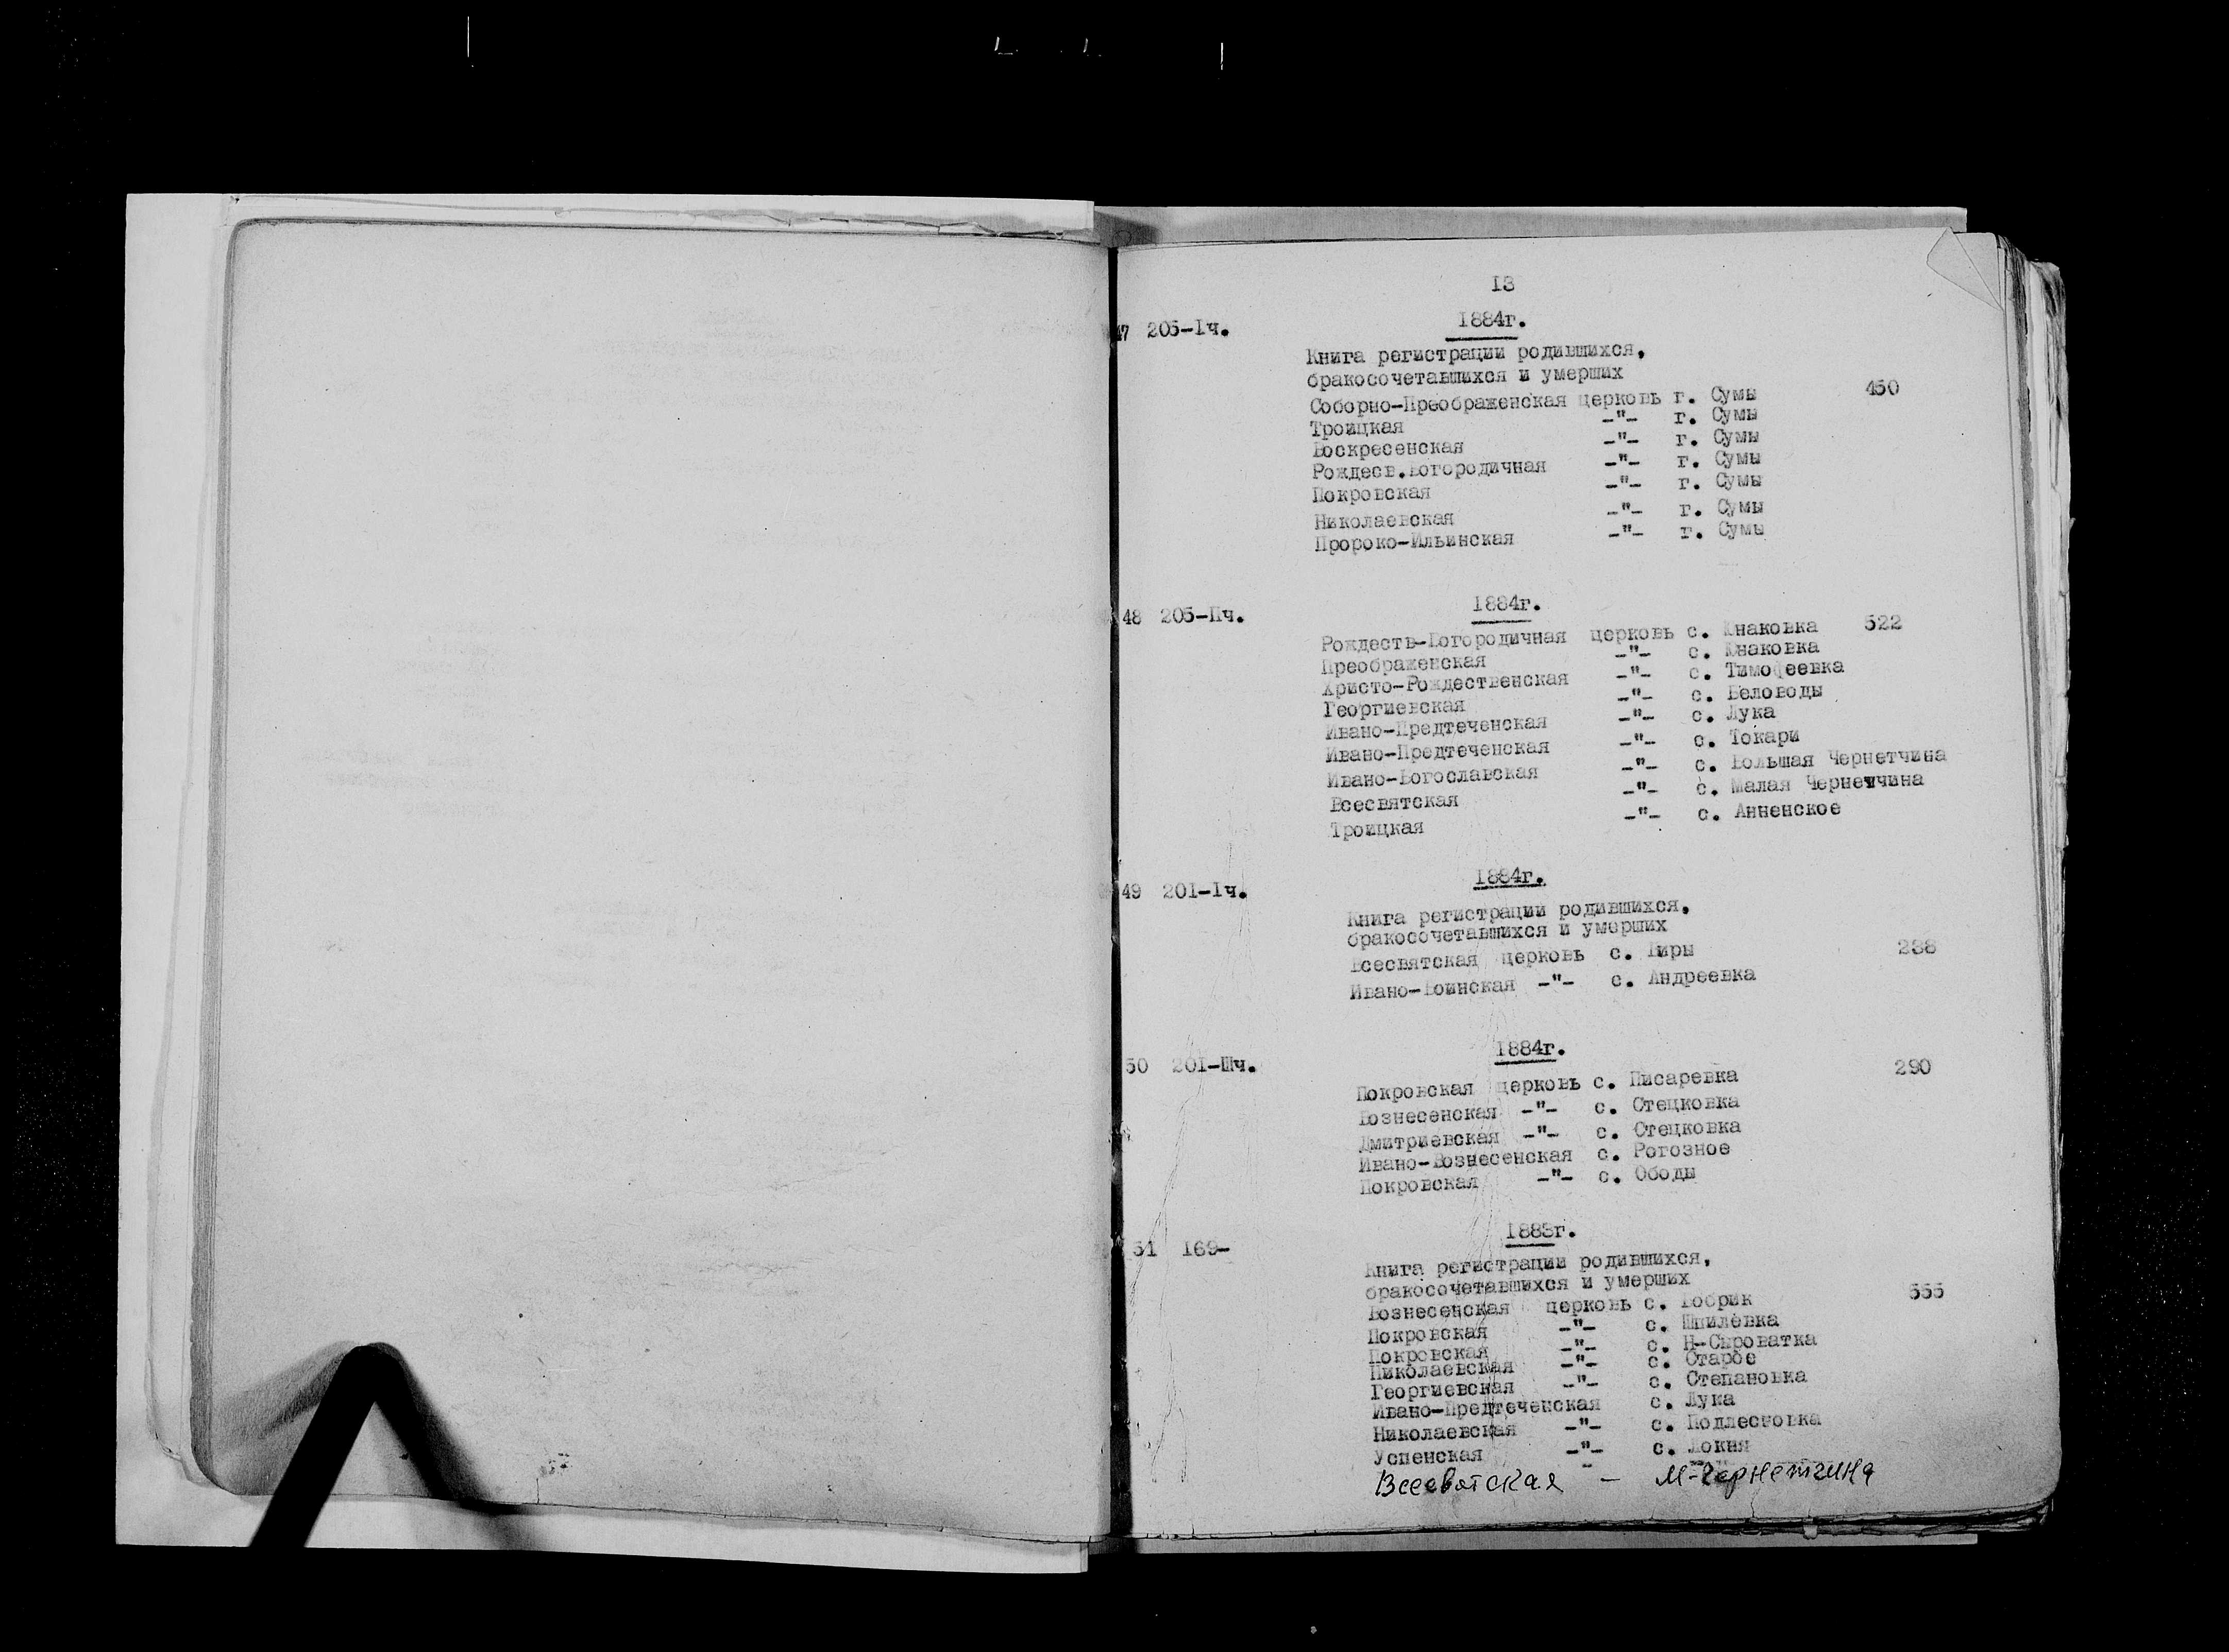 13
47 205-Iч. 1884г.
Книга регистрации родившихся,
бракосочетавшихся и умерших
Соборно-Преображенская церковь г. Сумы 450
Троицкая -"- г. Сумы
Воскресенская -"- г. Сумы
Рождесв.Богородичная -"- г. Сумы
Покровская -"- г. Сумы
Николаевская -"- г. Сумы
Пророко-Ильинская -"- г. Сумы
48 205-Пч. 1884г.
Рождеств-Богородичная церковь с. Юнаковка 522
Преображенская -"- с. Юнаковка
Христо-Рождественская -"- с. Тимофеевка
Георгиевская -"- с. Беловоды
Ивано-Предтеченская -"- с. Лука
Ивано-Предтеченская -"- с. Токари
Ивано-Богославская -"- с. Большая Чернетчина
Всесвятская -"- с. Малая Чернетчина
Троицкая -"- с. Анненское
49 201-Iч. 1884г.
Книга регистрации родившихся,
бракосочетавшихся и умерших
Всесвятская церковь с. Виры 238
Ивано-Воинская -"- с. Андреевка
50 201-Шч. 1884г.
Покровская церковь с. Писаревка 290
Вознесенская -"- с. Стецковка
Дмитриевская -"- с. Стецковка
Ивано-Вознесенская с. Рогозное
Покровская -"- с. Ободы
51 169- 1883г.
Книга регистрации родившихся,
бракосочетавшихся и умерших
Вознесенская церковь с. Бобрик 555
Покровская -"- с. Шпилевка
Покровская -"- с. Н-Сыроватка
Николаевская -"- с. Старое
Георгиевская -"- с. Степановка
Ивано-Предтеченская с. Лука
Николаевская -"- с. Подлесновка
Успенская -"- с. Локня
Всесвятская - М-Чернетчина